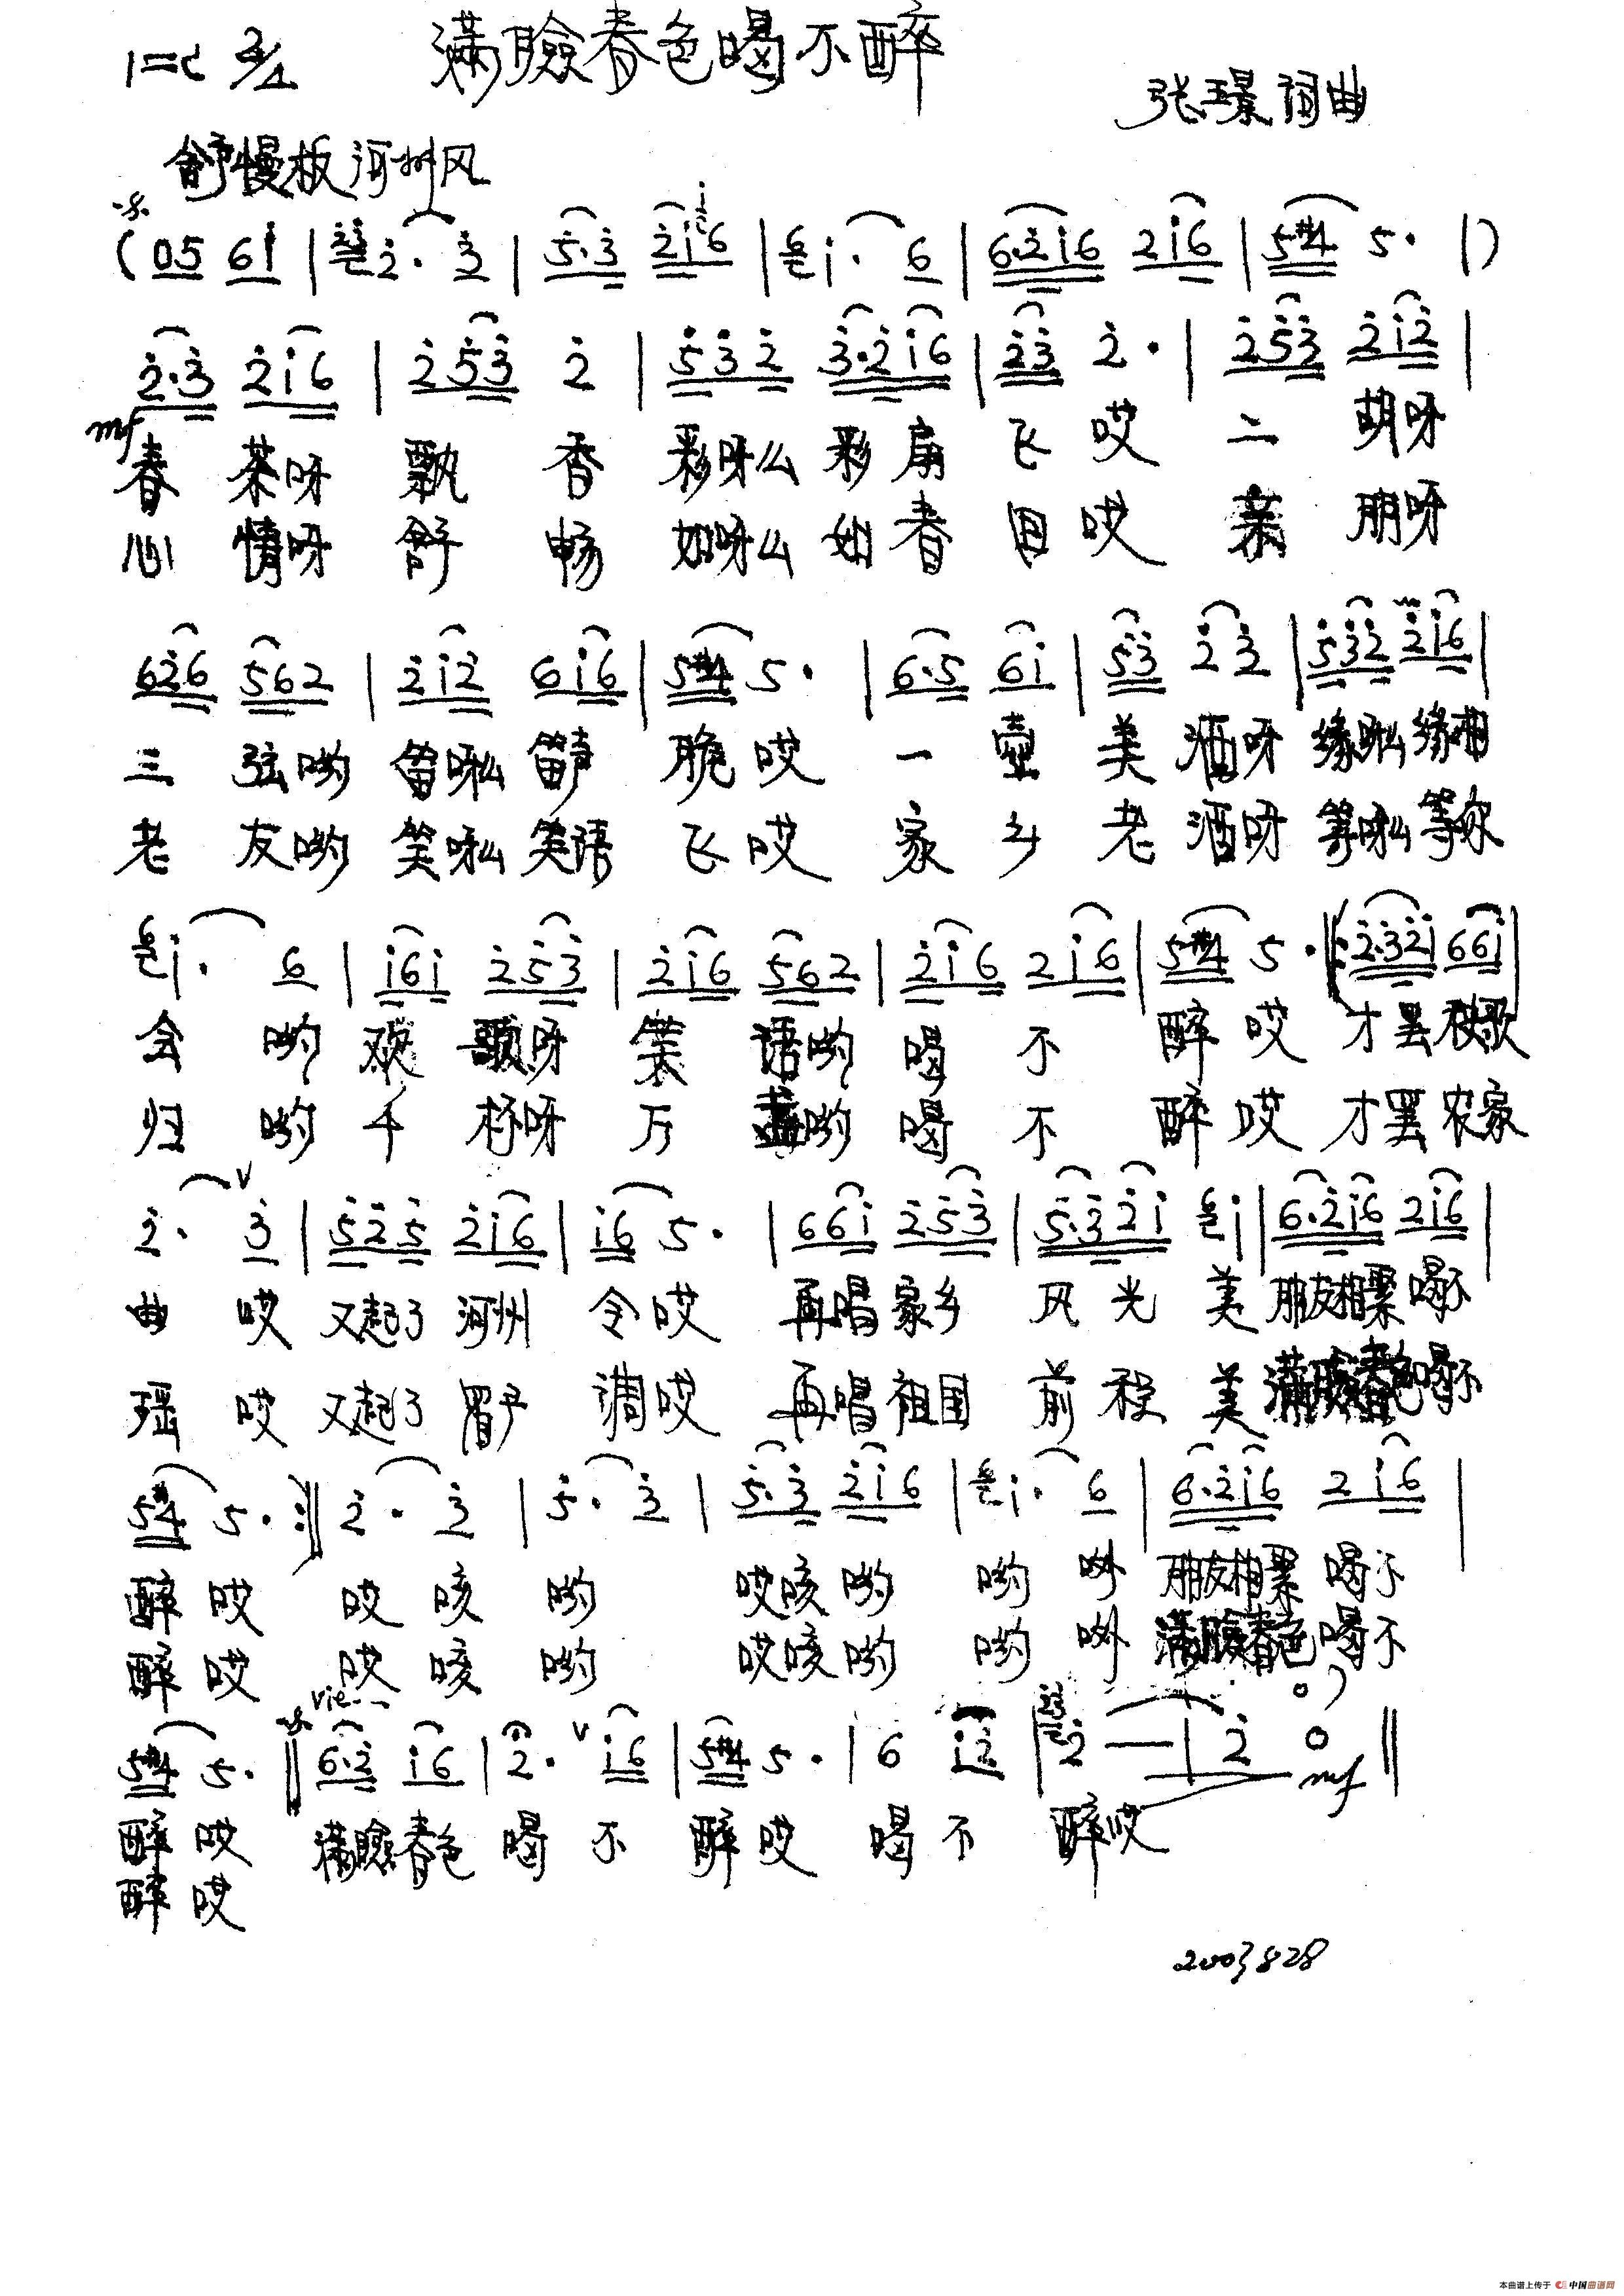 1=C 2/4 满脸春色喝不醉
张璟词曲
舒慢板 河州风
(05 6i | 2̇· 3̇ | 5̇·3̇ 2̇i6 | i· 6 | 6·2̇i6 2i6 | 5#4 5· |)
2̇·3̇ 2̇i6 | 2̇5̇3̇ 2̇ | 5̇3̇2̇ 3̇·2̇i6 | 2̇3̇ 2̇· | 2̇5̇3̇ 2̇i2̇ |
mf
春 茶呀 飘 香 彩呀么 彩 扇 飞 哎 二 胡呀
心 情呀 舒 畅 如呀么 如 春 回 哎 亲 朋呀
62̇6 562 | 2̇i2̇ 6i6 | 5#4 5· | 6·5 6i | 5̇3̇ 2̇3̇ | 5̇3̇2̇ 2̇i6 |
三 弦哟 笛呀么 笛声 脆 哎 一 壶 美 酒呀 缘呀么 缘相
老 友哟 笑呀么 笑语 飞 哎 家 乡 老 酒呀 等呀么 等你
i· 6 | i6i 2̇5̇3̇ | 2̇i6 562 | 2̇i6 2i6 | 5#4 5· |: 2̇·3̇2̇i 66i |
会 哟 欢 歌呀 笑 语哟 喝 不 醉 哎 才罢秧歌
归 哟 千 杯呀 万 盏哟 喝 不 醉 哎 才罢 农家
2̇· 3̇ | 5̇2̇5̇ 2̇i6 | i6 5· | 66i 2̇5̇3̇ | 5̇·3̇2̇i i | 6·2̇i6 2i6 |
曲 哎 又起了 河州 令 哎 再唱 家乡 风 光 美 朋友相聚 喝不
瑶 哎 又起了 眉户 调 哎 再唱 祖国 前 程 美 满脸春色 喝不
5#4 5· :| 2̇· 3̇ | 5̇· 3̇ | 5̇·3̇ 2̇i6 | i· 6 | 6·2̇i6 2i6 |
醉 哎 哎 咳 哟 哎咳 哟 哟 朋友相聚 喝不
醉 哎 哎 咳 哟 哎咳 哟 哟 满脸春色 喝不
5#4 5· || 6·2̇ i6 | 2̇· i6 | 5#4 5· | 6 i2̇ | 2̇ — | 2̇ 0 ||
mf
醉 哎 满脸春色 喝 不 醉 哎 喝 不 醉哎
醉 哎
2003 8 28
本曲谱上传于 中国曲谱网